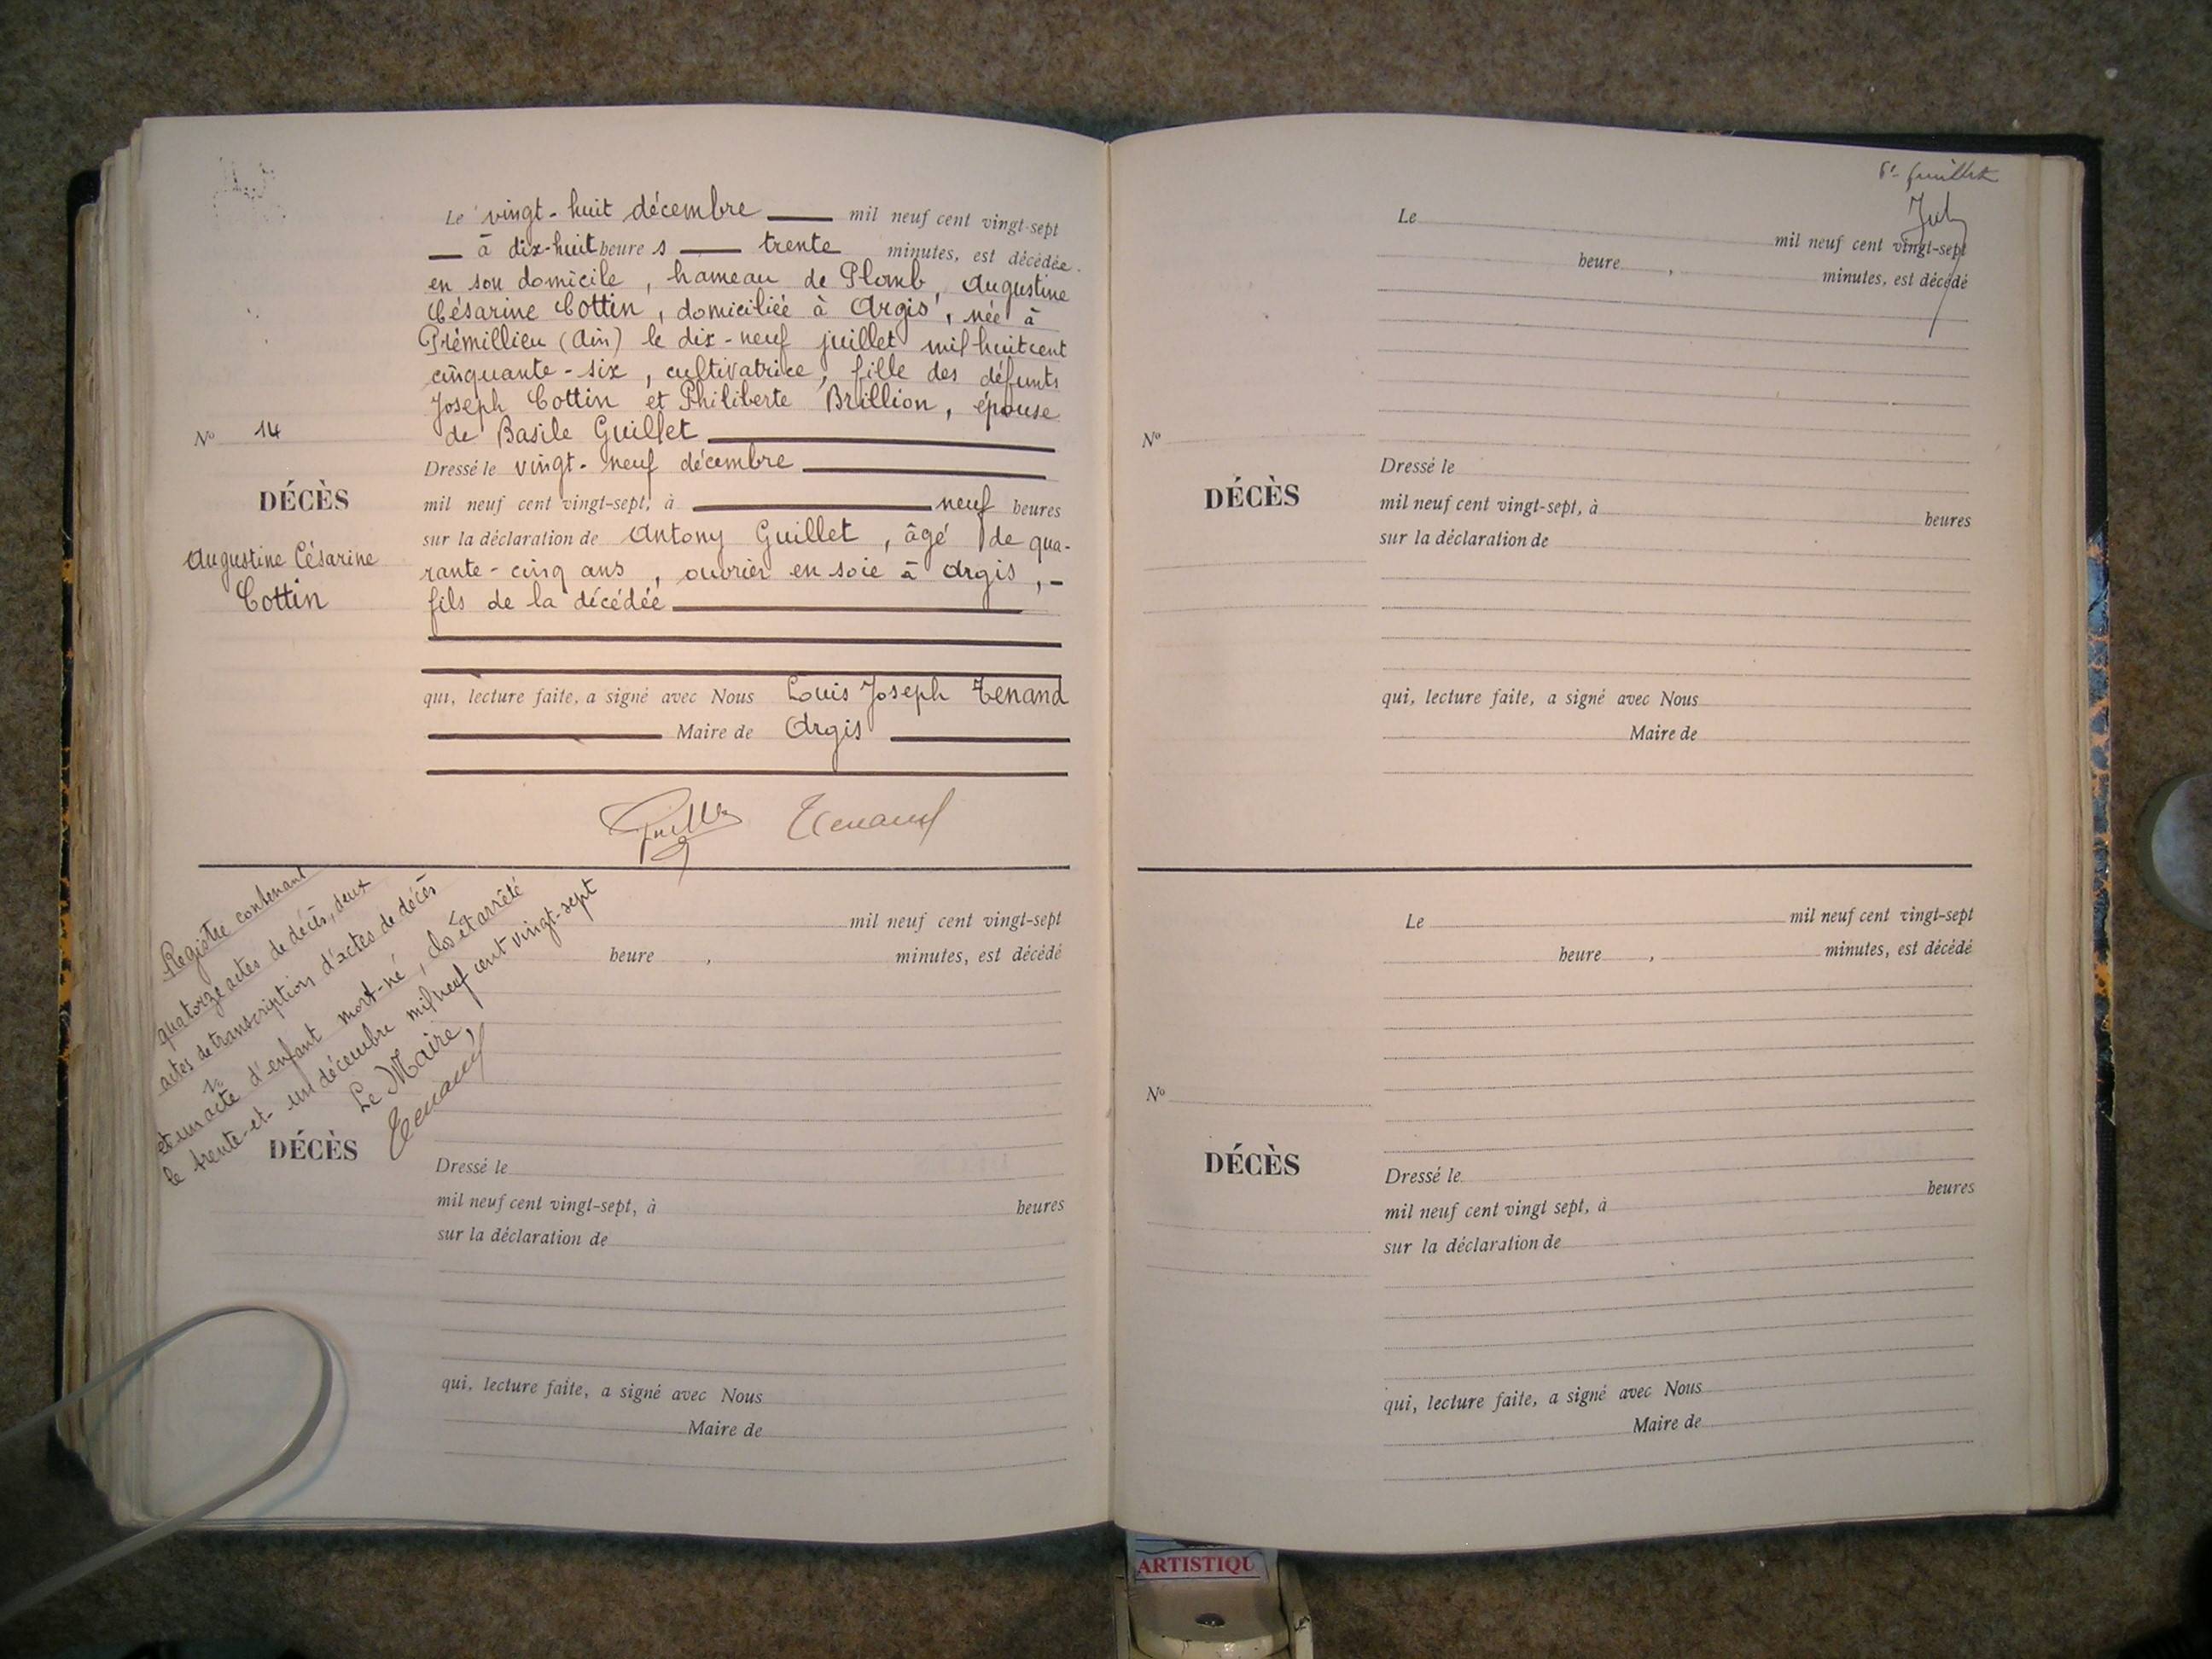 Le vingt-huit décembre mil neuf cent vingt-sept
à dix-huit heures trente minutes, est décédée
en son domicile, hameau de Plomb, Augustine
Césarine Cottin, domiciliée à Argis, née à
Prémillieu (Ain) le dix-neuf juillet mil huit cent
cinquante-six, cultivatrice, fille des défunts
Joseph Cottin et Philiberte Brillion, épouse
de Basile Guillet
Nº 14
DÉCÈS
Augustine Césarine
Cottin
Dressé le vingt-neuf décembre
mil neuf cent vingt-sept, à neuf heures
sur la déclaration de Antony Guillet, âgé de qua-
rante-cinq ans, ouvrier en soie à Argis,
fils de la décédée
qui, lecture faite, a signé avec Nous Louis Joseph Tenand
Maire de Argis
Tenand
Registre contenant
quatorze actes de décès, deux
actes de transcription d'actes de décès
et un acte d'enfant mort-né, clos et arrêté
le trente-et-un décembre mil neuf cent vingt-sept
Le Maire,
Tenand
mil neuf cent vingt-sept
heure , minutes, est décédé
DÉCÈS
Dressé le
mil neuf cent vingt-sept, à heures
sur la déclaration de
qui, lecture faite, a signé avec Nous
Maire de
feuillet
Le mil neuf cent vingt-sept
heure , minutes, est décédé
Nº
DÉCÈS
Dressé le
mil neuf cent vingt-sept, à heures
sur la déclaration de
qui, lecture faite, a signé avec Nous
Maire de
Le mil neuf cent vingt-sept
heure , minutes, est décédé
Nº
DÉCÈS
Dressé le
mil neuf cent vingt sept, à heures
sur la déclaration de
qui, lecture faite, a signé avec Nous
Maire de
ARTISTIQU